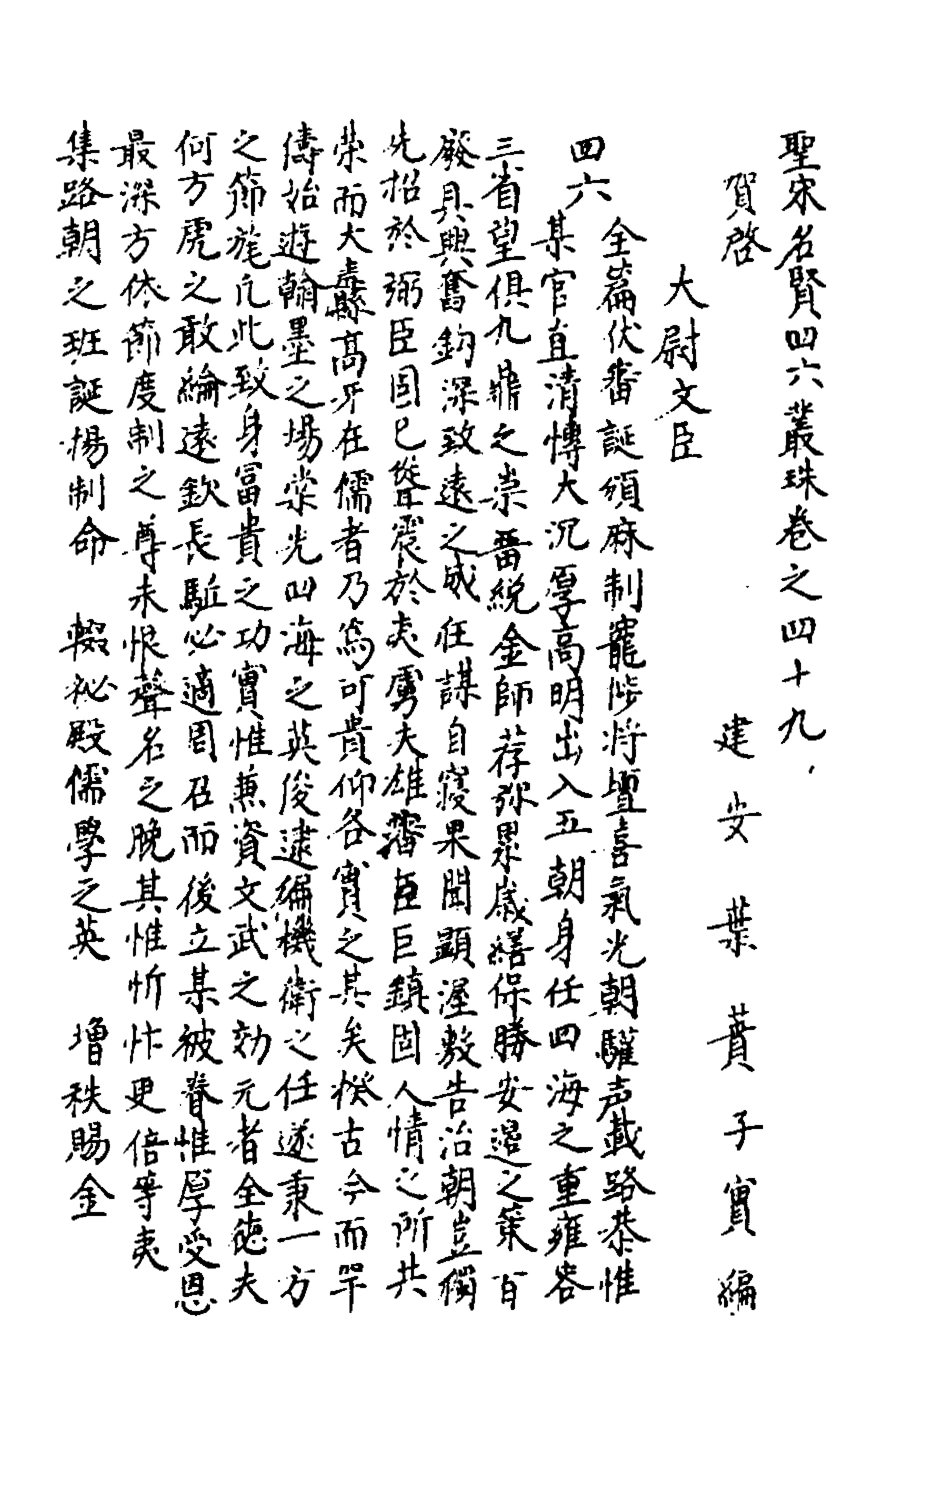 聖宋名賢四六叢珠卷之四十九
建安葉蕡子實編
賀啓
大尉文臣
四六
全篇伏審誕頒麻制寵陟將壇喜氣光朝驩声載路恭惟
某官直清慱大沉厚高明出入五朝身任四海之重雍容
三省望俱九鼎之崇晋綂金師荐弥累歲繕保勝安邉之策百
廢具興奮鈎深致遠之威任謀自寢果聞顯渥敷告治朝豈獨
先招於弼臣固已聳震於夷虜夫雄藩臣巨鎮固人情之所共
荣而大纛高牙在儒者乃爲可貴仰各實之其矣揆古今而罕
儔始遊翰墨之塲棠光四海之英俊逮編機衛之任遂秉一方
之節旄凢此致身冨貴之功實惟兼資文武之効元者全徳夫
何方虎之敢綸遠欽長駈必適周召而後立某被眷惟厚受恩
最深方依節度制之尊未恨聲名之晚其惟忻忭更倍等夷
集路朝之班誕揚制命 輟祕殿儒學之英 增秩賜金